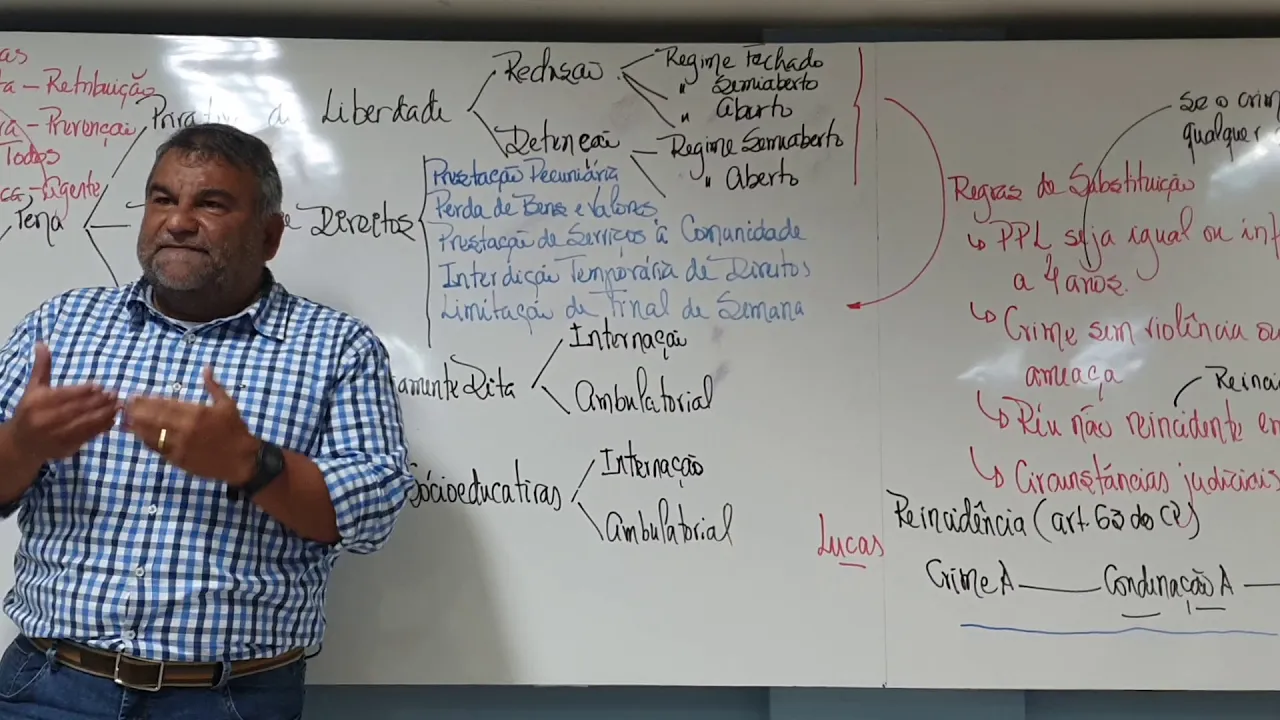 as
ta - Retribuição
ra - Prevenção
Todos
ca - Agente
Pena
Privativ de Liberdade
Reclusão
Regime Fechado
" Semiaberto
" Aberto
Detenção
Regime Semiaberto
" Aberto
e Direitos
Prestação Pecuniária
Perda de Bens e Valores
Prestação de Serviços à Comunidade
Interdição Temporária de Direitos
Limitação de Final de Semana
amente Dita
Internação
Ambulatorial
Sócioeducativas
Internação
Ambulatorial
Lucas
se o crim
qualquer
Regras de Substituição
PPL seja igual ou inf
a 4 anos.
Crime sem violência ou
ameaça
Reinci
Réu não reincidente em
Circunstâncias judiciais
Reincidência (art. 63 do CP)
Crime A — Condenação A —